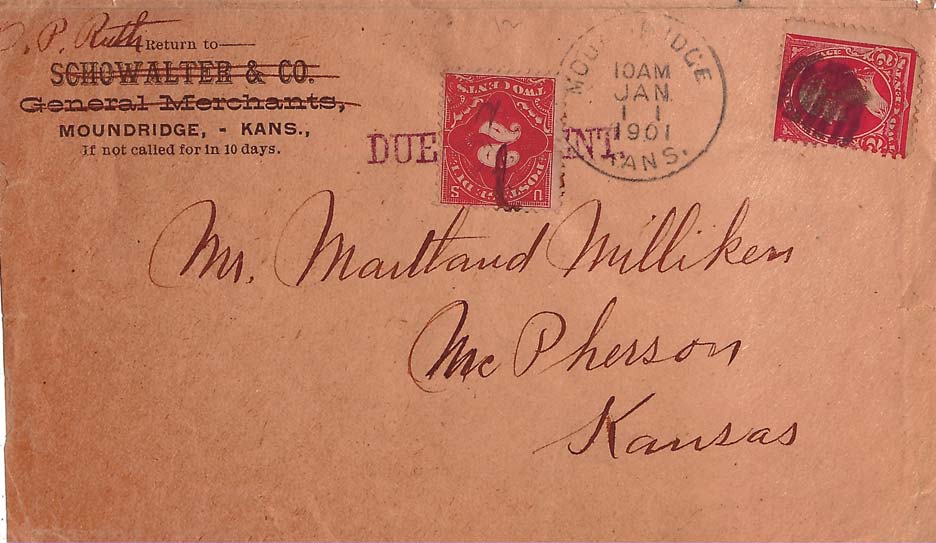 P. Ruth Return to
SCHOWALTER & CO.
General Merchants,
MOUNDRIDGE, - KANS.,
If not called for in 10 days.
DUE ENT.
TWO CENTS
2
POSTAGE DUE
U S
MOUNDRIDGE
10AM
JAN
1 1
1901
KANS.
2
Mr. Maitland Milliken
McPherson
Kansas